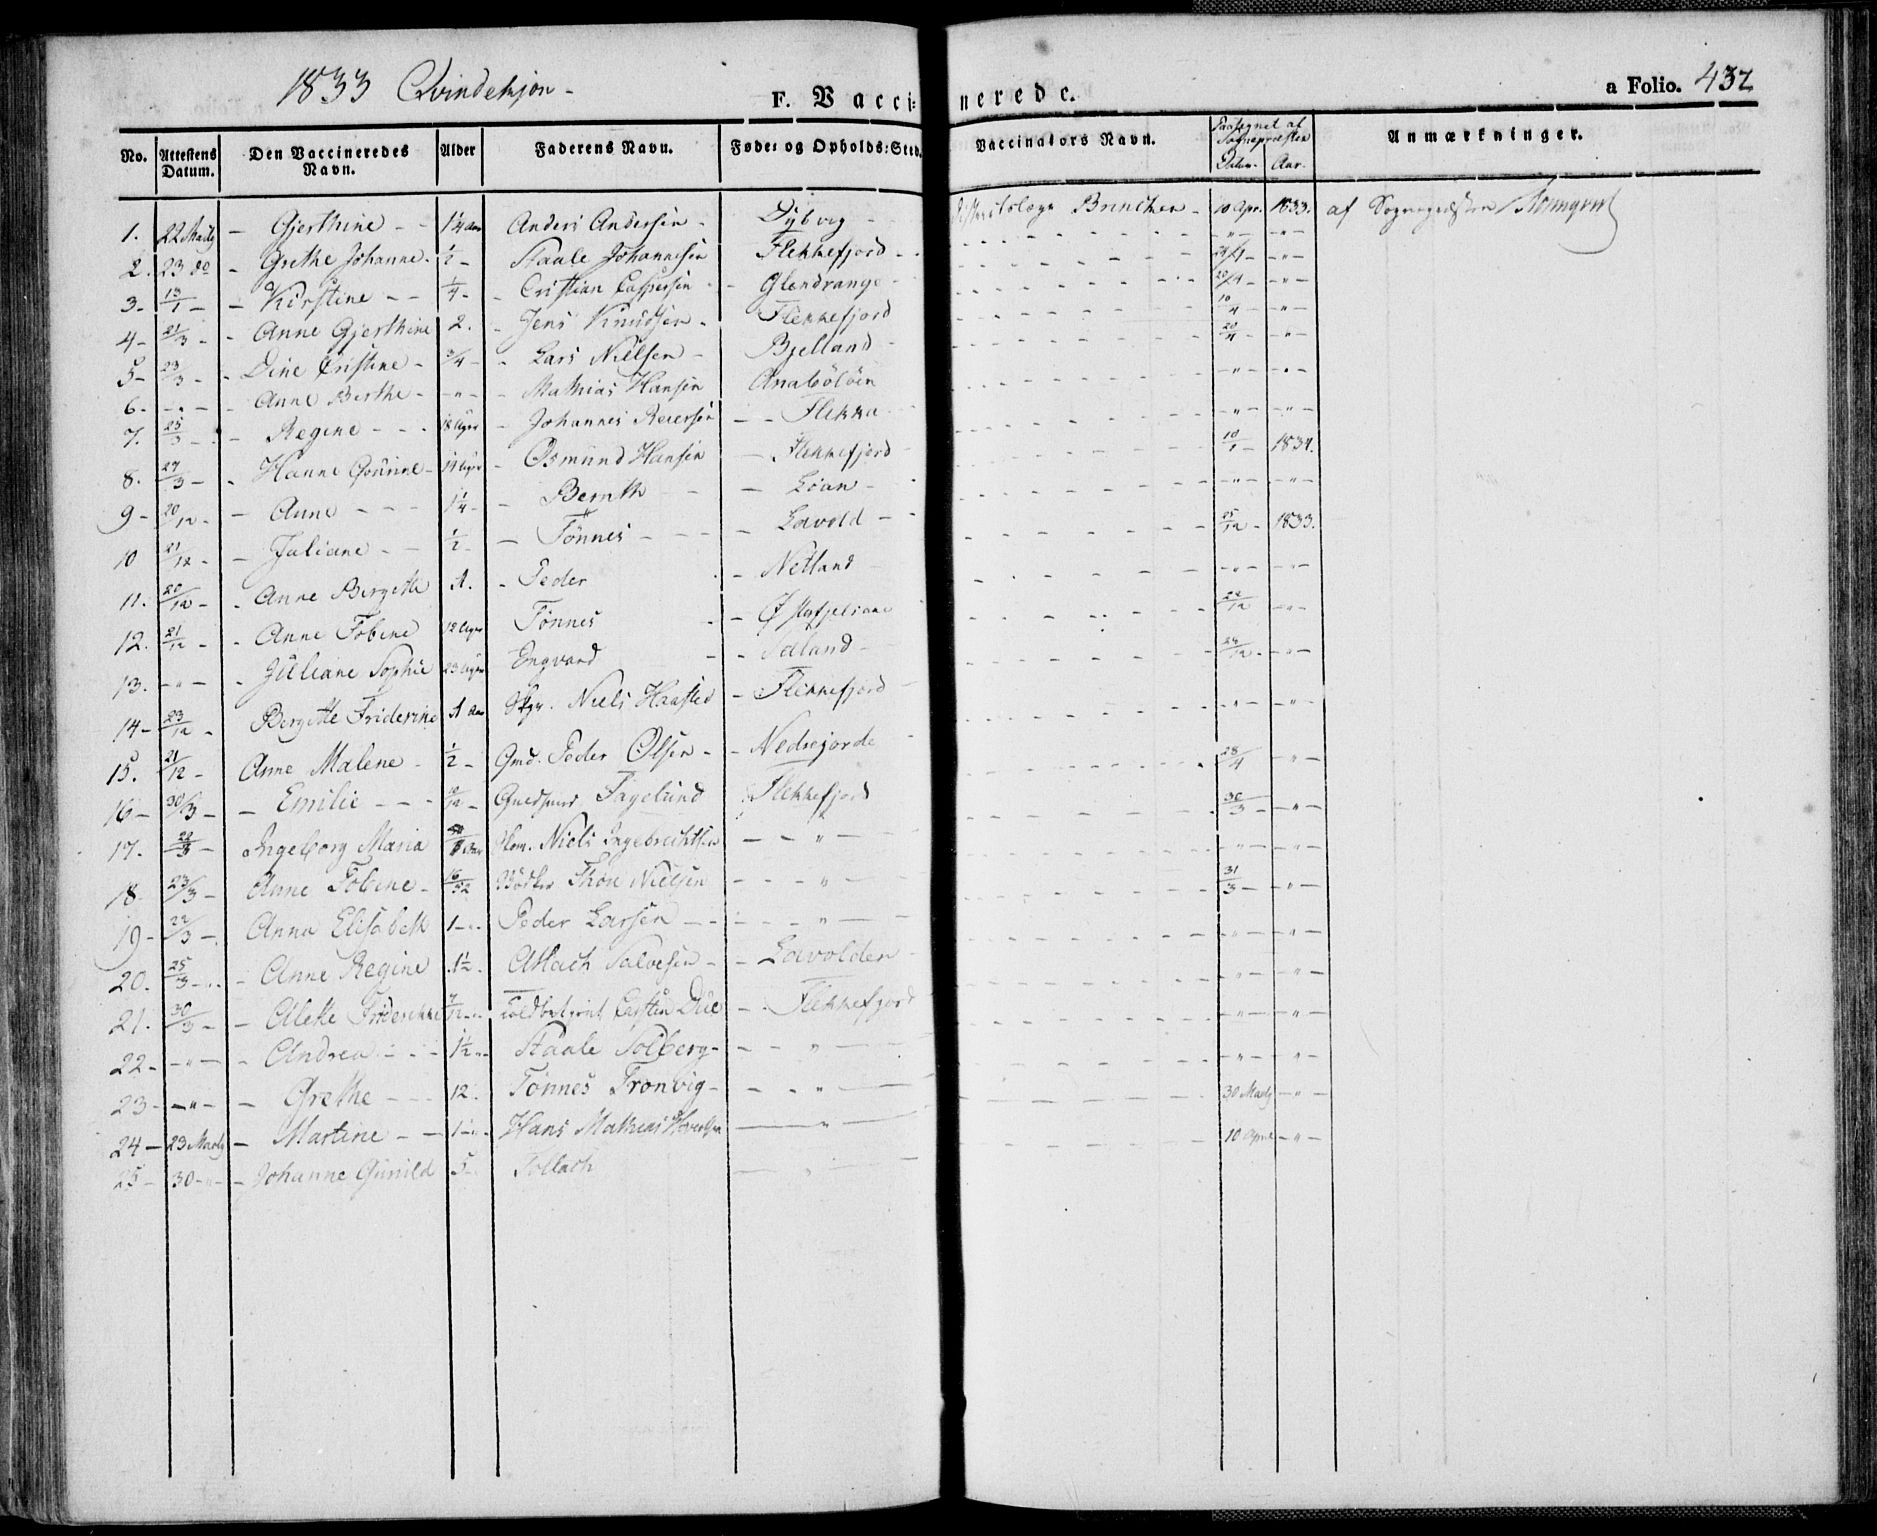 1833 Qvindekjøn -
F. Vaccinerede.
a Folio. 432
No. Attestens Datum. Den Vaccineredes Navn. Alder Faderens Navn. Føde- og Opholds-Sted. Vaccinators Navn. Paategnet af Sognepræsten Datum. Aar. Anmærkninger.
1. 22 Martz - Gjerthine - - 1¼ Aar Anders Andersen - Dybvig - Districtslæge - 10 Apr. 1833. af Sognepræsten
2. 23 do - Grethe Johanne. ½ - Staale Johannesen Flekkefjord - - " - - " -
3 - 13/1 - - Kirstine - - ¼ - Cristian Caspersen - Glendrange - 24/4 - - " -
4 - 21/3 - - Anne Gjerthine 2. - Jens Knudsen - Flekkefjord 20/4 - - " -
5 - 23/3 - - Dine Cristine - ¾ - - Lars Nielsen - Bjelland - 10/4 - " -
6. - " - - Anne Berthe - - " - - Mathias Hansen Anabeløen 20/4 - - " -
7. 25/3 - - Regine - - - 18 Uger - Johannes Reiersen - - Flekka - " - - " -
8. 27/3 - - Hanne - 14 Uger - Osmund Hansen - Flekkefjord - " - - " -
9 - 20/12 - - Anne - - - 1¼ - Bernth - - - Loan - 10/1 - 1834.
10 21/12 - - Juliane - - ½ - - Tønnes - - - - Lavold - - " - - " -
11. 20/12 - - Anne Bergitte 1. - Peder - Netland 25/12 - 1833.
12. 21/12 - - Anne Tobine 12 Uger Tønnes - - " - - " -
13. - " - - Juliane Sophie 23 Uger Engvard - - Sæland - 22/12 - " -
14 - 23/12 - Bergitte Friderine 1 Aar Niels Haasted - Flekkefjord - 24/12 - - " -
15. 21/12 - Anne Malene - ½ - Gmd. Peder Olsen - - Nedrejorde - " - - " -
16 - 30/3 - - Emilie - - - 10/12 - Fagelund Flekkefjord 28/4 - " -
17. 22/3 - Ingeborg Maria Niels Ingebrechtsen - - " - 30/3 - - " -
18. 23/3 - Anne Tobine - 16/52 Bødker Thore Nielsen - - - " - - " - - " -
19 - 22/3 - Anna Elisabeth 1 - - Peder Larsen - - - - - " - 31/3 - - " -
20. 25/3 - - - Anne Regine 1½ - Atlach Salvesen - - Lavolden - " - - " -
21. 30/3 - - Alette Friderikke 7/12 - Toldbetjent Carsten Due - - Flekkefjord - " - - " -
22 - - " - - Andrea - - - 1½ - Staale Solberg - - - " - - " - - " -
23 - - " - - Grethe - - - 12. Tønnes Tronvig - - - " - - " - - " -
24 - 23 Martz - Martine - - 1 - Hans Mathias - " - 30 Martz - " -
25 - 30 - " - - Johanne Gunild 5 - Tollach - " - 10 April - " -